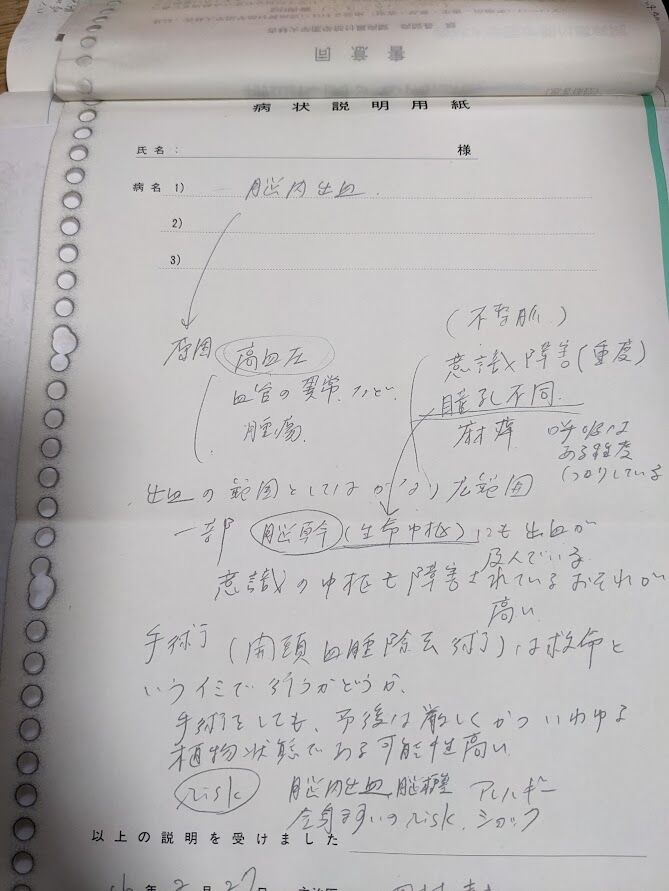 同意書
病状説明用紙
氏名： 様
病名 1) 脳内出血
2)
3)
原因 高血圧
血管の異常 など
腫瘍
(不整脈)
意識障害(重度)
瞳孔不同
麻痺 呼吸は
ある程度
しっかりしている
出血の範囲としてはかなり広範囲
一部 脳幹(生命中枢)にも出血が
及んでいる
意識の中枢も障害されているおそれが
高い
手術(開頭血腫除去術)は救命と
いうイミで行うかどうか.
手術をしても、予後は厳しくかついわゆる
植物状態である可能性高い
risk 脳内出血、脳梗塞 アレルギー
全身麻酔のrisk. ショック
以上の説明を受けました
年 2月27日